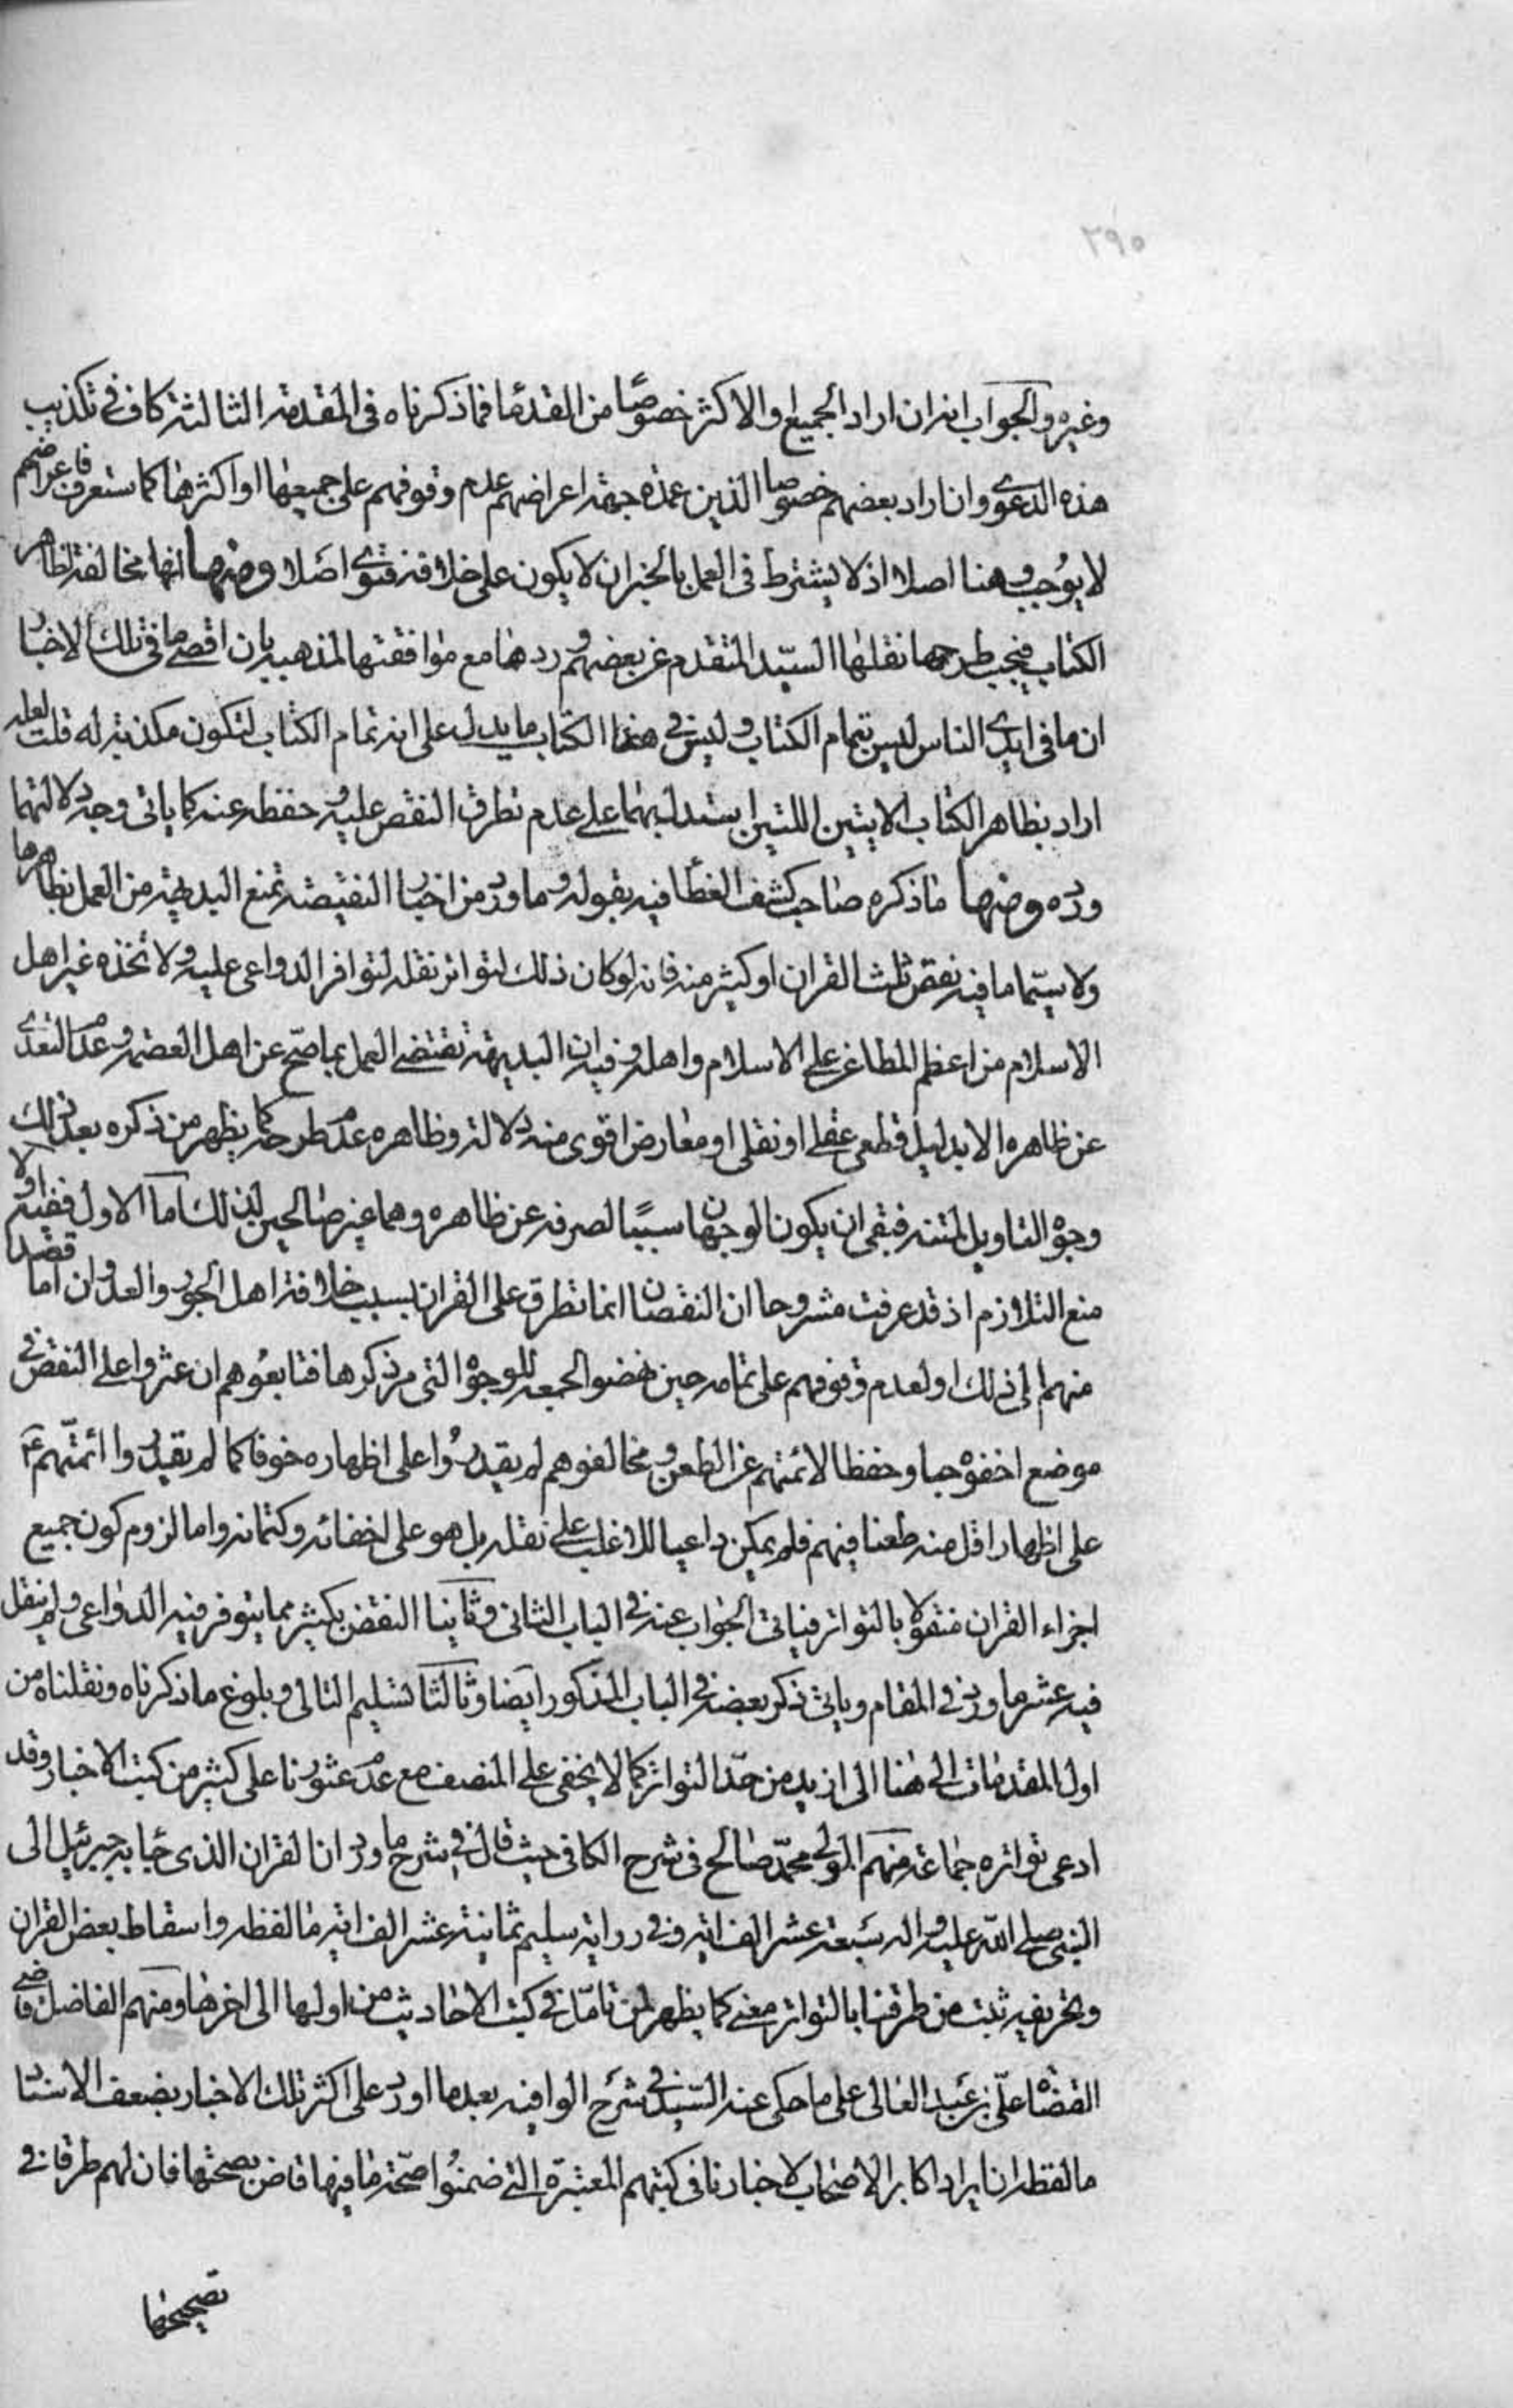 ٢٩٥
وغيره والجواب انه ان اراد الجميع او الاكثر خصوصًا من القدما فما ذكرناه في المقدمة الثالثة كاف في تكذيب
هذه الدعوى وان اراد بعضهم خصوصا الذين عمدة جهة اعراضهم عدم وقوفهم على جميعها او اكثرها كما ستعرف فاعراضهم
لا يوجب وهنا اصلا اذ لا يشترط في العمل بالخبر ان لا يكون على خلافه فتوى اصلا ومنها انها مخالفة لظاهر
الكتاب فيجب طرحها نقلها السيد المتقدم عن بعضهم وردها مع موافقتها لمذهبه بان اقصى ما في تلك الاخبار
ان ما في ايدي الناس ليس بتمام الكتاب وليس في هذا الكتاب ما يدل على انه تمام الكتاب لتكون مكذبة له قلت لعله
اراد بظاهر الكتاب الايتين اللتين استدل بهما على عدم تطرق النقص عليه وحفظه عنه كما ياتي وجه دلالتهما
ورده ومنها ما ذكره صاحب كشف الغطا فيه بقوله وما ورد من اخبار النقيصة تمنع البديهة من العمل بظاهرها
ولا سيّما ما فيه نقص ثلث القران او كثير منه فانه لو كان ذلك لتواتر نقله لتوافر الدواعي عليه ولاتخذه غير اهل
الاسلام من اعظم المطاعن على الاسلام واهله وفيه ان البديهة تقتضي العمل بما صحّ عن اهل العصمة وعدم التعدي
عن ظاهره الا بدليل قطعي عقلي او نقلي او معارض اقوى منه دلالة وظاهره عدم طرحه كما يظهر من ذكره بعد ذلك
وجوه التاويل لمتنه فبقى ان يكون الوجهان سببًا لصرفه عن ظاهره وهما غير صالحين لذلك اما الاول ففيه اولا
منع التلازم اذ قد عرفت مشروحا ان النقصان انما تطرق على القران بسبب خلافة اهل الجور والعدوان اما قصدا
منهم الى ذلك او لعدم وقوفهم على تمامه حين نهضوا لجمعه للوجوه التي مر ذكرها فتابعوهم ان عثروا على النقص في
موضع اخفوه حبا وحفظا لائمتهم عن الطعن ومخالفوهم لم يقدروا على اظهاره خوفا كما لم يقدروا ائمتهم ع
على اظهار اقل منه طعنا فيهم فلم يكن داعيا للاغلب على نقله بل هو على اخفائه وكتمانه واما لزوم كون جميع
اجزاء القران منقولا بالتواتر فياتي الجواب عنه في الباب الثاني وثانيا النقض بكثير مما يتوفر فيه الدواعي ولم ينقل
فيه عشر ما ورد في المقام وياتي ذكر بعضه في الباب المذكور ايضا وثالثا تسليم التالي وبلوغ ما ذكرناه ونقلناه من
اول المقدمات الى هنا الى ازيد من حدّ التواتر كما لا يخفى على المنصف مع عدم عثورنا على كثير من كتب الاخبار وقد
ادعى تواتره جماعة منهم المولى محمّد صالح في شرح الكافي حيث قال في شرح ما ورد ان القران الذي جاء به جبرئيل الى
النبي صلى الله عليه واله سبعة عشر الف اية وفي رواية سليم ثمانية عشر الف اية ما لفظه واسقاط بعض القران
وتحريفه ثبت من طرقنا بالتواتر معنى كما يظهر لمن تامّل في كتب الاحاديث من اولها الى اخرها ومنهم الفاضل قاضي
القضاة علّي بن عبد العالي على ما حكى عنه السّيد في شرح الوافية بعد ما اورد على اكثر تلك الاخبار بضعف الاسناد
ما لفظه ان ايراد اكابر الاصحاب لاخبارنا في كتبهم المعتبرة التي ضمنوا صحّة ما فيها قاض بصحتها فان لهم طرقا في
تصحيحها